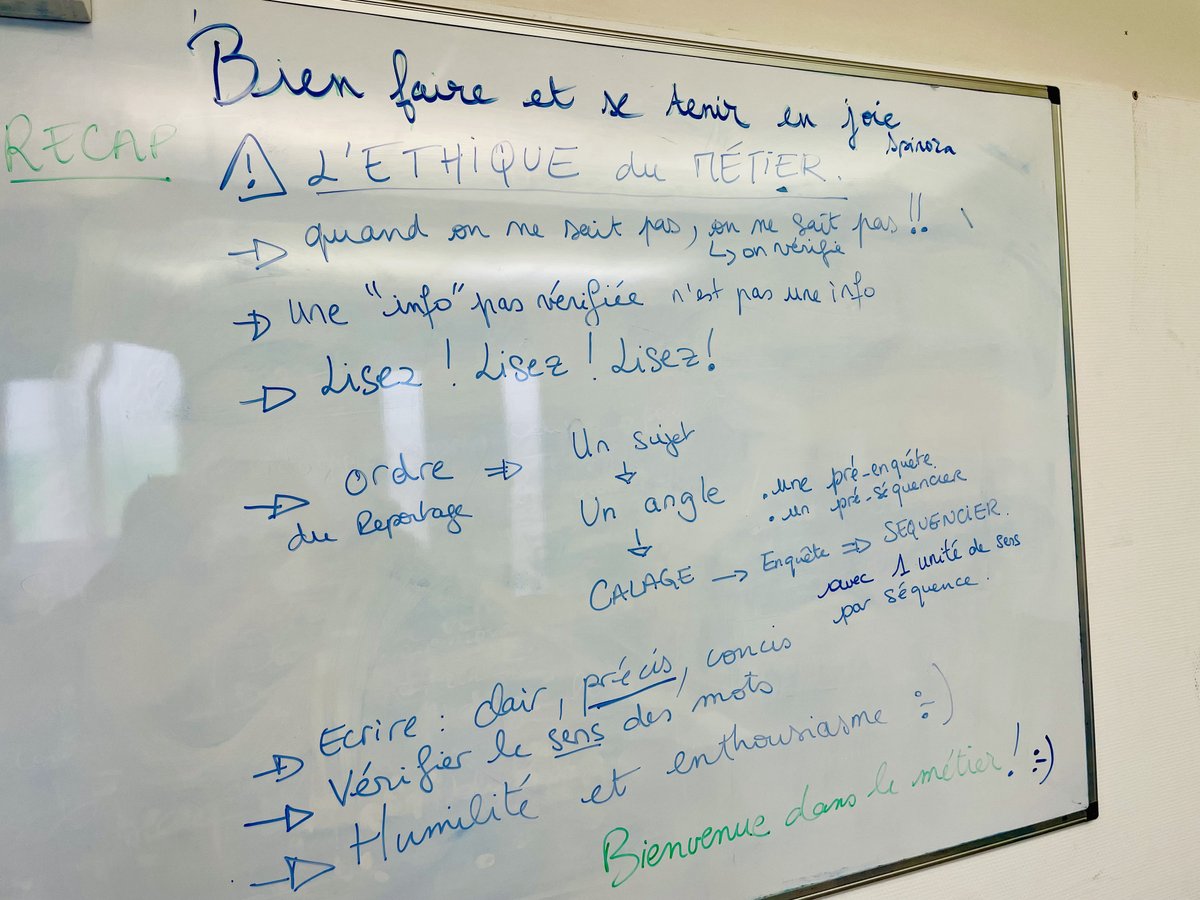 Bien faire et se tenir en joie
Spinoza
RECAP
⚠ L'ETHIQUE du MÉTIER.
→ quand on ne sait pas, on ne sait pas !!
↳ on vérifie
→ Une "info" pas vérifiée n'est pas une info
→ Lisez ! Lisez ! Lisez !
→ ordre du Reportage ⇒
Un sujet
↓
Un angle
. une pré-enquête
. un pré-séquencier
↓
CALAGE → Enquête ⇒ SEQUENCIER.
avec 1 unité de sens
par séquence.
→ Ecrire : clair, précis, concis
→ Vérifier le sens des mots
→ Humilité et enthousiasme :-)
Bienvenue dans le métier ! :-)